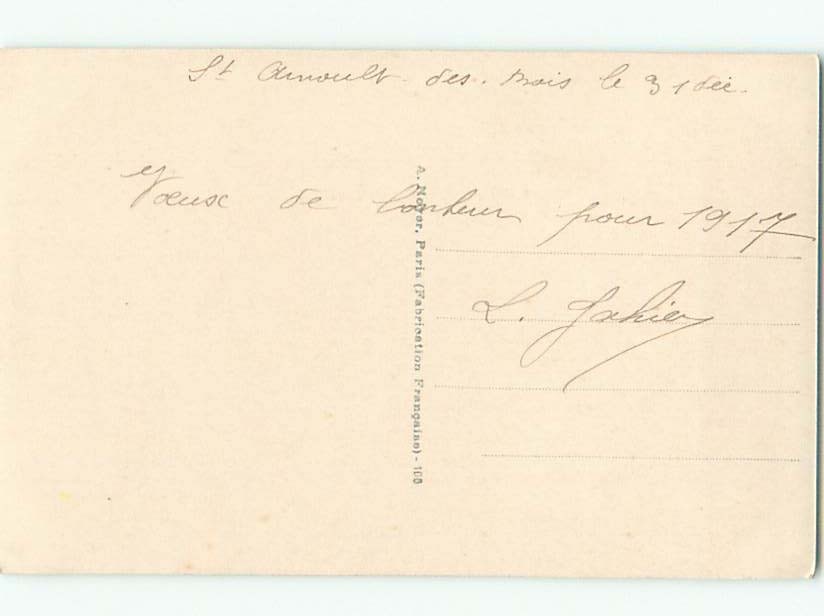 St Arnoult des. Bois le 31 déc.
Voeux de bonheur pour 1917
L. Gahier
A. Noyer, Paris (Fabrication Française) - 106